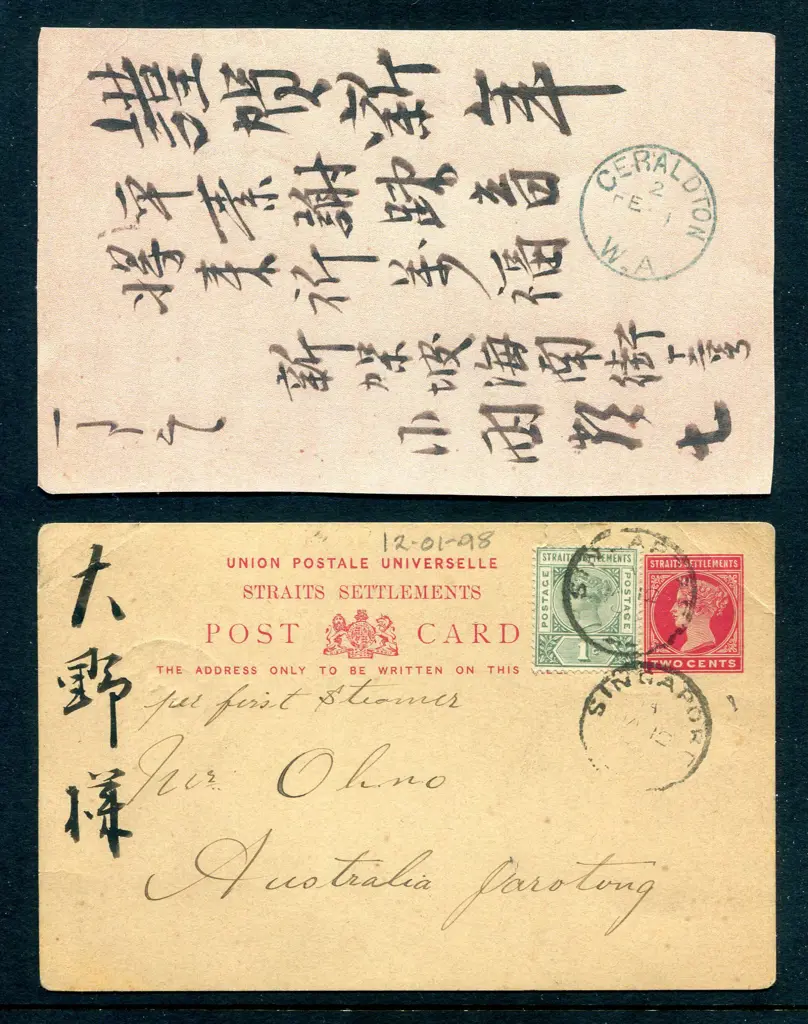 謹賀新年
平素謝疎音
将来祈萬福
新架坡海南街
GERALDTON
2
FE
W.A
12-01-98
UNION POSTALE UNIVERSELLE
STRAITS SETTLEMENTS
POST CARD
THE ADDRESS ONLY TO BE WRITTEN ON THIS
STRAITS SETTLEMENTS
POSTAGE
POSTAGE
1
STRAITS SETTLEMENTS
TWO CENTS
SINGAPORE
大野様
per first Steamer
Mr Ohno
Australia Jarotong